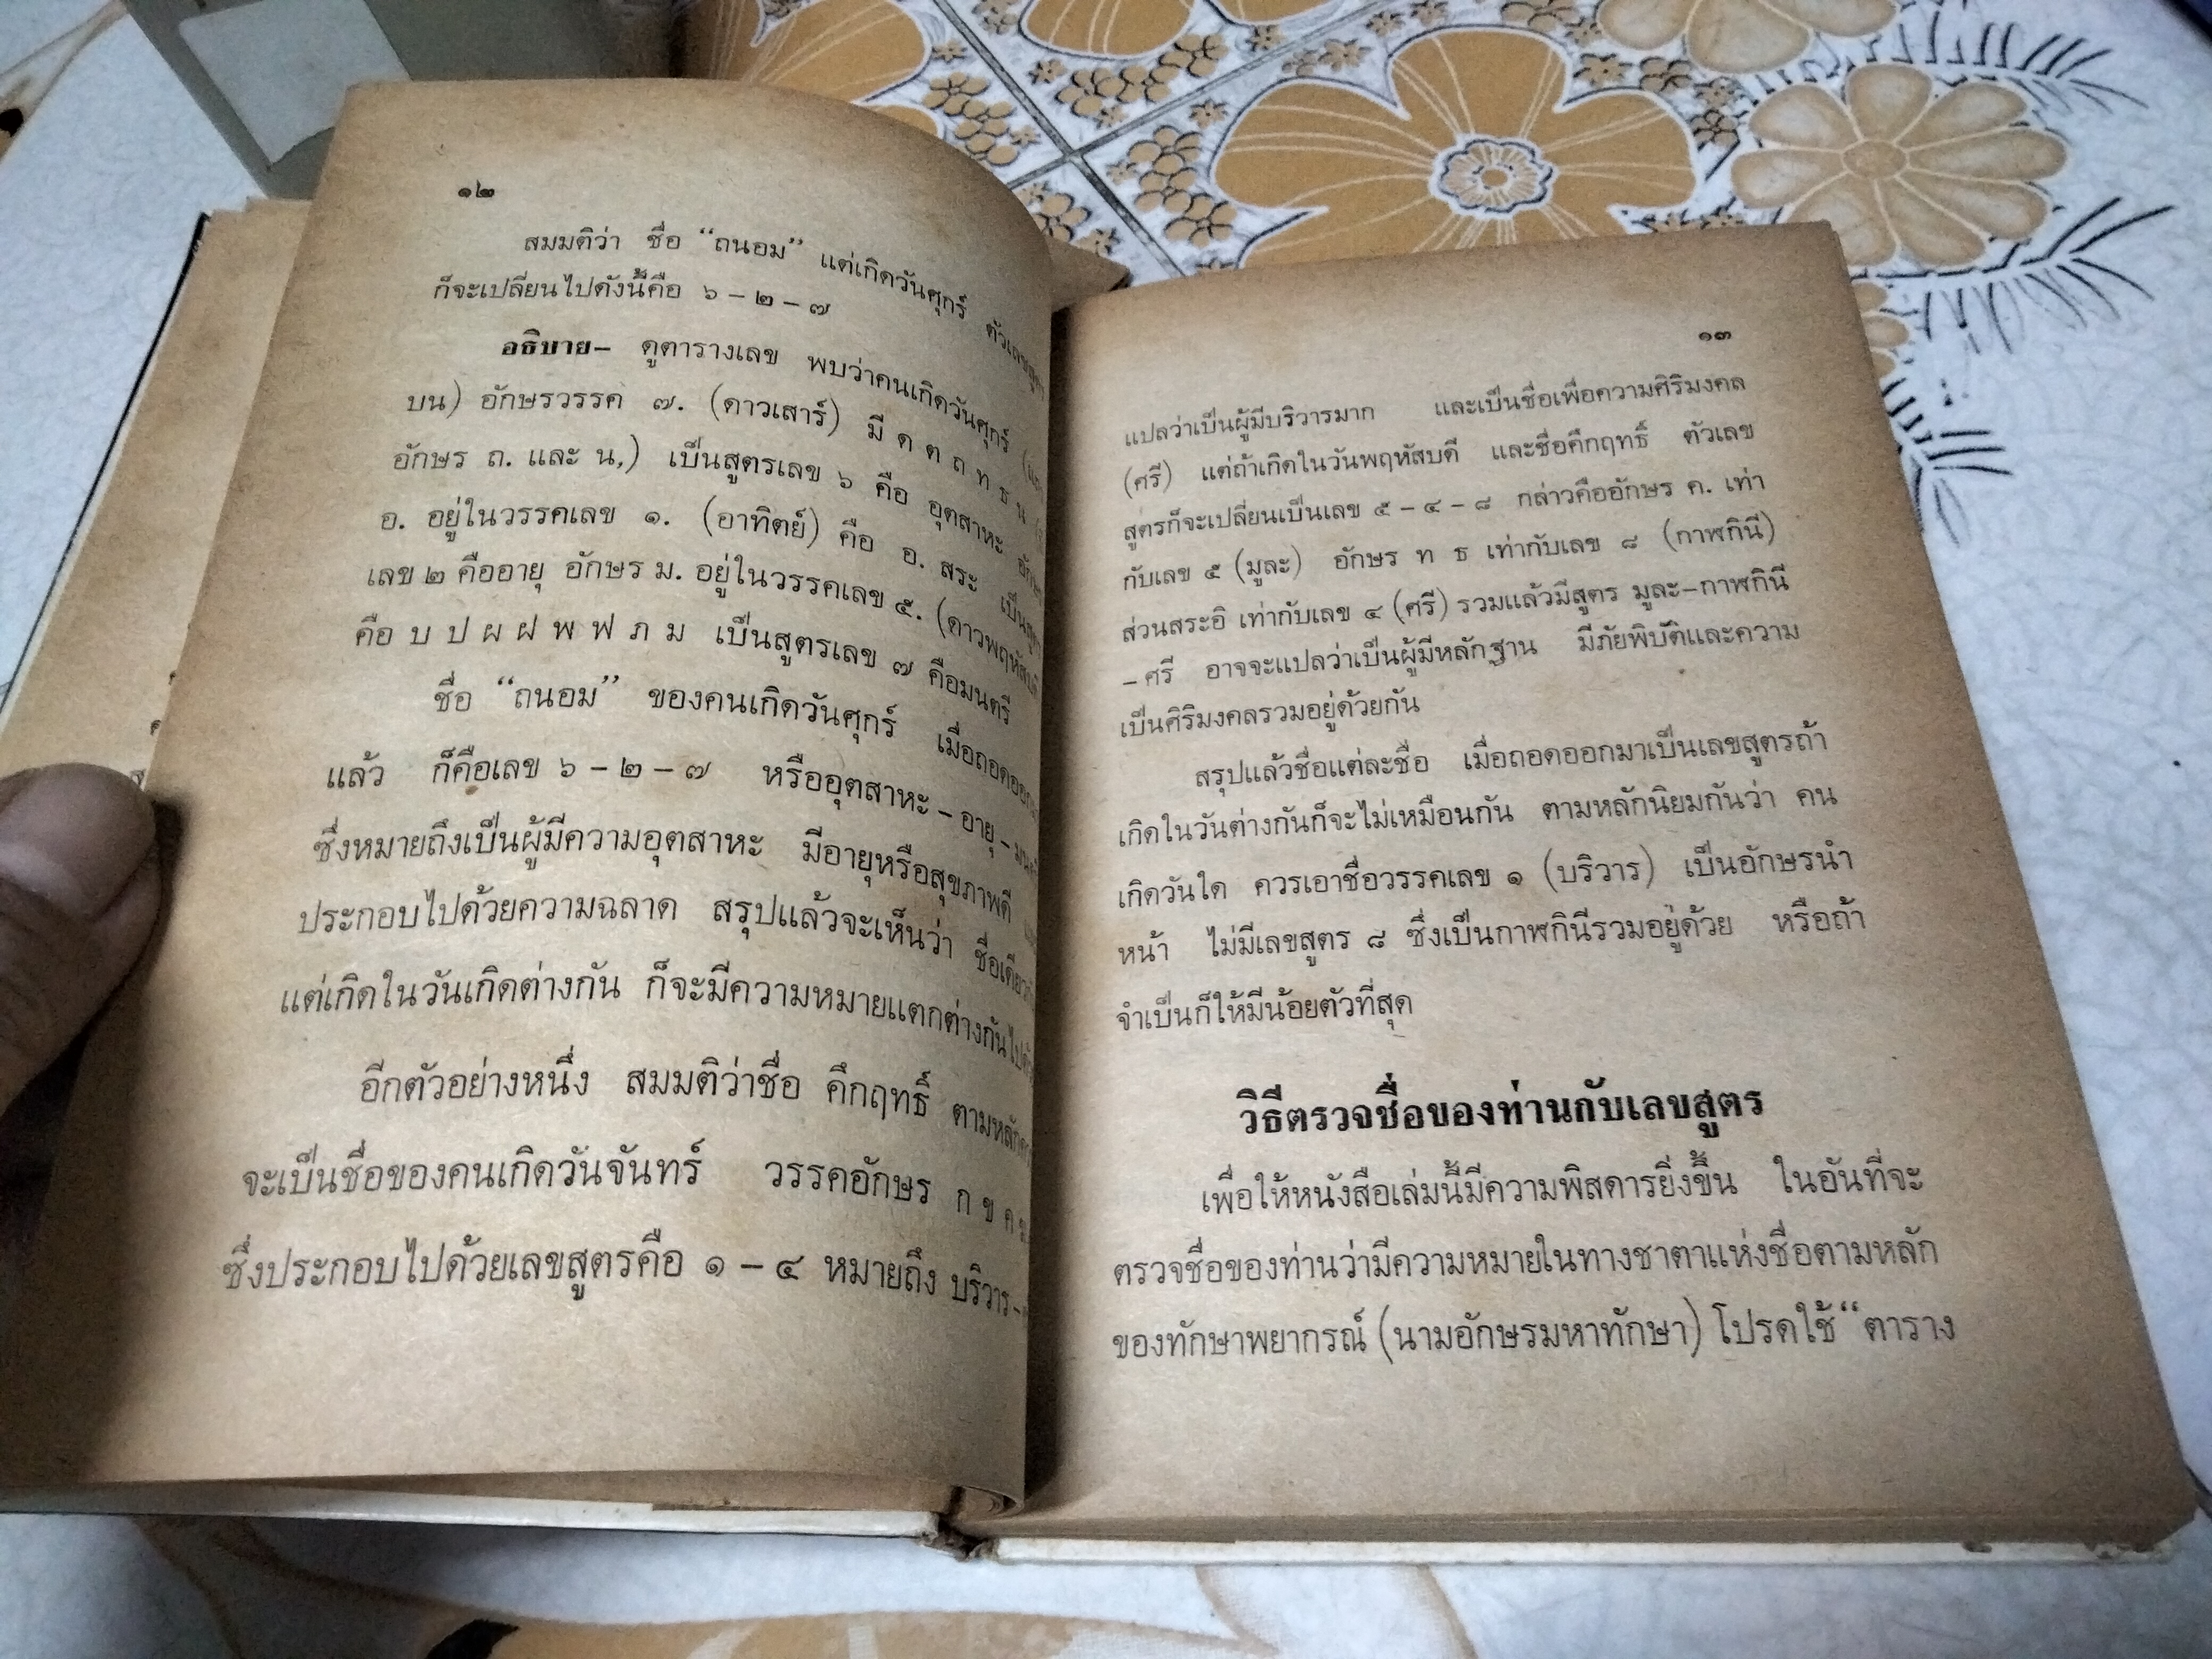 ๑๒
สมมติว่า ชื่อ “ถนอม” แต่เกิดวันศุกร์ ตัวเลขสูตร
ก็จะเปลี่ยนไปดังนี้คือ ๖ – ๒ – ๗
อธิบาย– ดูตารางเลข พบว่าคนเกิดวันศุกร์
บน) อักษรวรรค ๗. (ดาวเสาร์) มี ด ต ถ ท ธ น
อักษร ถ. และ น,) เป็นสูตรเลข ๖ คือ อุตสาหะ
อ. อยู่ในวรรคเลข ๑. (อาทิตย์) คือ อ. สระ เป็นสูตร
เลข ๒ คืออายุ อักษร ม. อยู่ในวรรคเลข ๕. (ดาวพฤหัสบดี
คือ บ ป ผ ฝ พ ฟ ภ ม เป็นสูตรเลข ๗ คือมนตรี
ชื่อ “ถนอม” ของคนเกิดวันศุกร์ เมื่อถอดออก
แล้ว ก็คือเลข ๖ – ๒ – ๗ หรืออุตสาหะ – อายุ –
ซึ่งหมายถึงเป็นผู้มีความอุตสาหะ มีอายุหรือสุขภาพดี
ประกอบไปด้วยความฉลาด สรุปแล้วจะเห็นว่า ชื่อเดียว
แต่เกิดในวันเกิดต่างกัน ก็จะมีความหมายแตกต่างกัน
อีกตัวอย่างหนึ่ง สมมติว่าชื่อ คึกฤทธิ์ ตามหลัก
จะเป็นชื่อของคนเกิดวันจันทร์ วรรคอักษร ก ข ค
ซึ่งประกอบไปด้วยเลขสูตรคือ ๑ – ๔ หมายถึง บริวาร –
๑๓
แปลว่าเป็นผู้มีบริวารมาก และเป็นชื่อเพื่อความศิริมงคล
(ศรี) แต่ถ้าเกิดในวันพฤหัสบดี และชื่อคึกฤทธิ์ ตัวเลข
สูตรก็จะเปลี่ยนเป็นเลข ๕ – ๔ – ๘ กล่าวคืออักษร ค. เท่า
กับเลข ๕ (มูละ) อักษร ท ธ เท่ากับเลข ๘ (กาฬกินี)
ส่วนสระอิ เท่ากับเลข ๔ (ศรี) รวมแล้วมีสูตร มูละ–กาฬกินี
– ศรี อาจจะแปลว่าเป็นผู้มีหลักฐาน มีภัยพิบัติและความ
เป็นศิริมงคลรวมอยู่ด้วยกัน
สรุปแล้วชื่อแต่ละชื่อ เมื่อถอดออกมาเป็นเลขสูตรถ้า
เกิดในวันต่างกันก็จะไม่เหมือนกัน ตามหลักนิยมกันว่า คน
เกิดวันใด ควรเอาชื่อวรรคเลข ๑ (บริวาร) เป็นอักษรนำ
หน้า ไม่มีเลขสูตร ๘ ซึ่งเป็นกาฬกินีรวมอยู่ด้วย หรือถ้า
จำเป็นก็ให้มีน้อยตัวที่สุด
วิธีตรวจชื่อของท่านกับเลขสูตร
เพื่อให้หนังสือเล่มนี้มีความพิสดารยิ่งขึ้น ในอันที่จะ
ตรวจชื่อของท่านว่ามีความหมายในทางชาตาแห่งชื่อตามหลัก
ของทักษาพยากรณ์ (นามอักษรมหาทักษา) โปรดใช้ “ตาราง